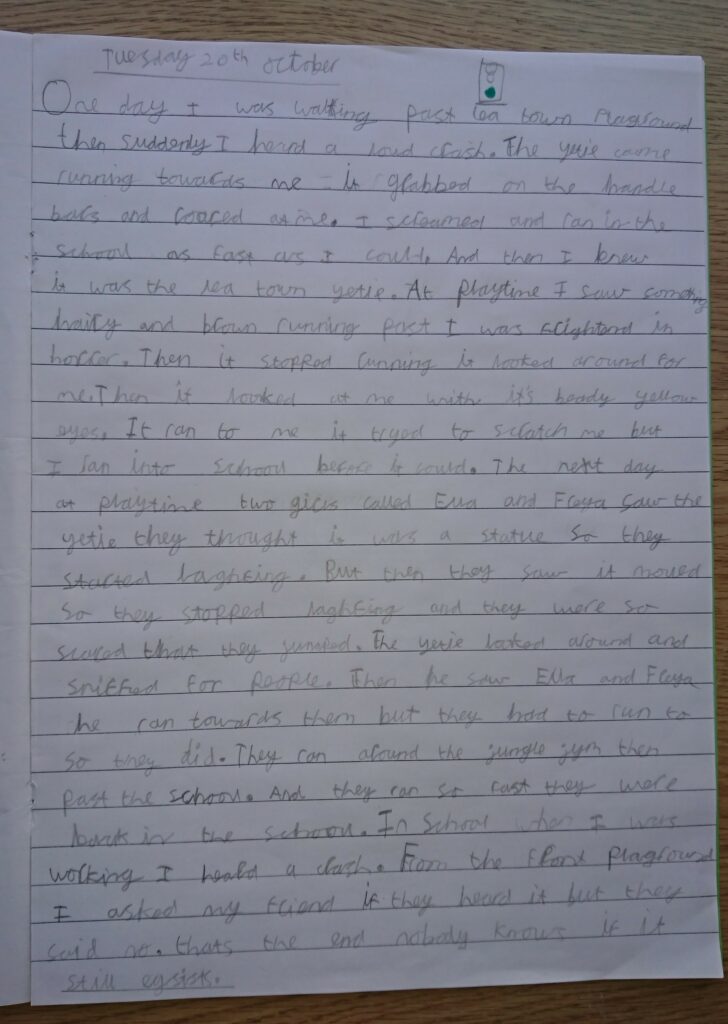 Tuesday 20th october
One day I was walking past lea town Plaground
then suddenly I heard a loud crash. The yetie came
running towards me - it grabbed on the handle
bars and roared at me. I screamed and ran in the
school as fast as I could. And then I knew
it was the lea town yetie. At playtime I saw something
hairy and brown running past I was frightend in
horror. Then it stopped running it looked around for
me. Then it looked at me with it's beady yellow
eyes. It ran to me it tryed to scratch me but
I ran into school before it could. The next day
at playtime two girls called Ella and Freya saw the
yetie they thought it was a statue so they
started laghfing. But then they saw it moved
so they stopped laghfing and they were so
scared that they jumped. The yetie looked around and
sniffed for people. Then he saw Ella and Freya
he ran towards them but they had to run to
so they did. They ran around the jungle jym then
past the school. And they ran so fast they were
back in the school. In School when I was
working I heard a crash. From the front plaground
I asked my friend if they heard it but they
said no. thats the end nobody knows if it
still egsists.